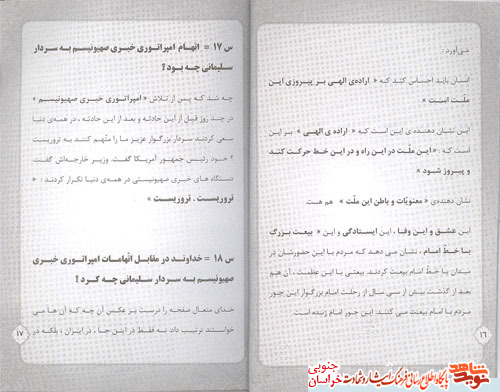 می‌آورد :
انسان باید احساس کند که « اراده‌ی الهی بر پیروزی این
ملّت است »
این نشان دهنده ی این است که « اراده ی الهی » بر این
است که : « این ملّت در این راه و در این خط حرکت کند
و پیروز شود »
نشان دهنده‌ی « معنویّات و باطن این ملّت » هم هست
این عشق و این وفا ، این ایستادگی و این « بیعت بزرگ
با خطّ امام ، نشان می دهد که مردم با این حضورشان در
میدان با خطّ امام بیعت کردند. بیعتی با این عظمت ، آن هم
بعد از گذشت بیش از سی سال از رحلت امام بزرگوار این جور
مردم با امام بیعت می کنند. این جور امام زنده است
۱۶
س ۱۷ = اتهام امپراتوری خبری صهیونیسم به سردار
سلیمانی چه بود ؟
چه شد که پس از تلاش « امپراتوری خبری صهیونیسم »
در چند روز قبل از این حادثه و بعد از این حادثه ، در همه‌ی دنیا
سعی کردند سردار بزرگوار عزیز ما را متّهم کنند به تروریست
؟ خود رئیس جمهور آمریکا گفت. وزیر خارجه‌اش گفت.
دستگاه های خبری صهیونیستی در همه‌ی دنیا تکرار کردند : «
تروریست ، تروریست »
س ۱۸ = خداوند در مقابل اتّهامات امپراتوری خبری
صهیونیسم به سردار سلیمانی چه کرد ؟
خدای متعال صفحه را درست بر عکس آن چه که آن ها می
خواستند ترتیب داد. نه فقط در این جا ، در ایران ، بلکه در
۱۷
نوید شاهد
پایگاه اطلاع رسانی فرهنگ ایثار و شهادت
خراسان جنوبی